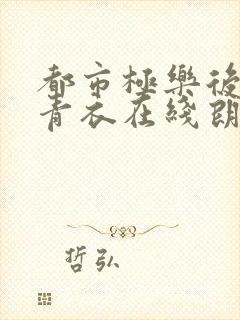 都市極樂後
青衣在綫朗
哲弘